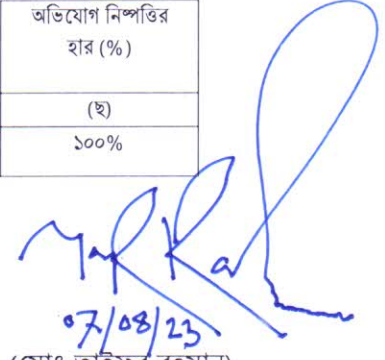 অভিযোগ নিষ্পত্তির
হার (%)
(ছ)
১০০%
07/08/23